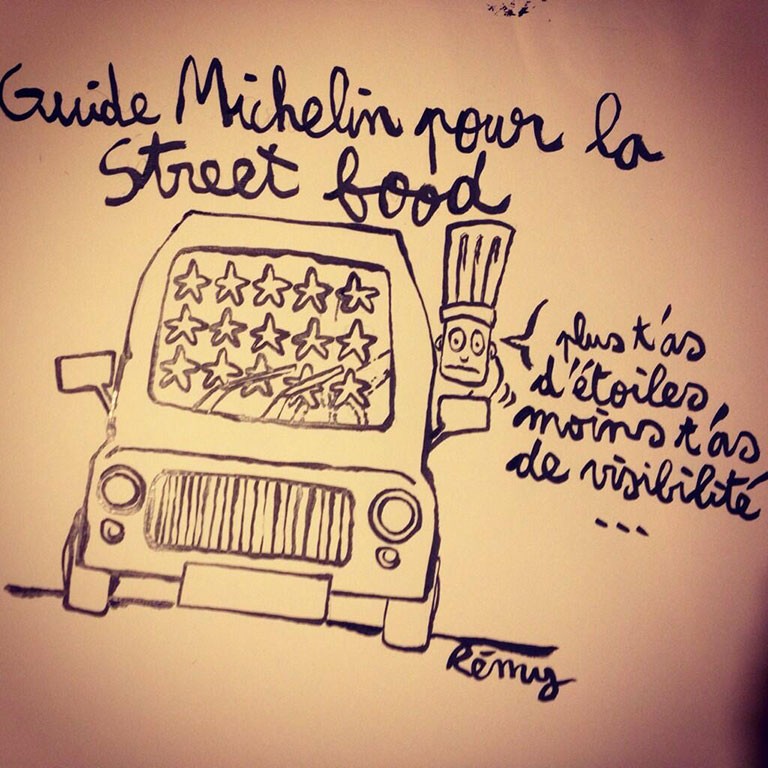 Guide Michelin pour la
Street food
plus t'as
d'étoiles,
moins t'as
de visibilité
...
Rémy